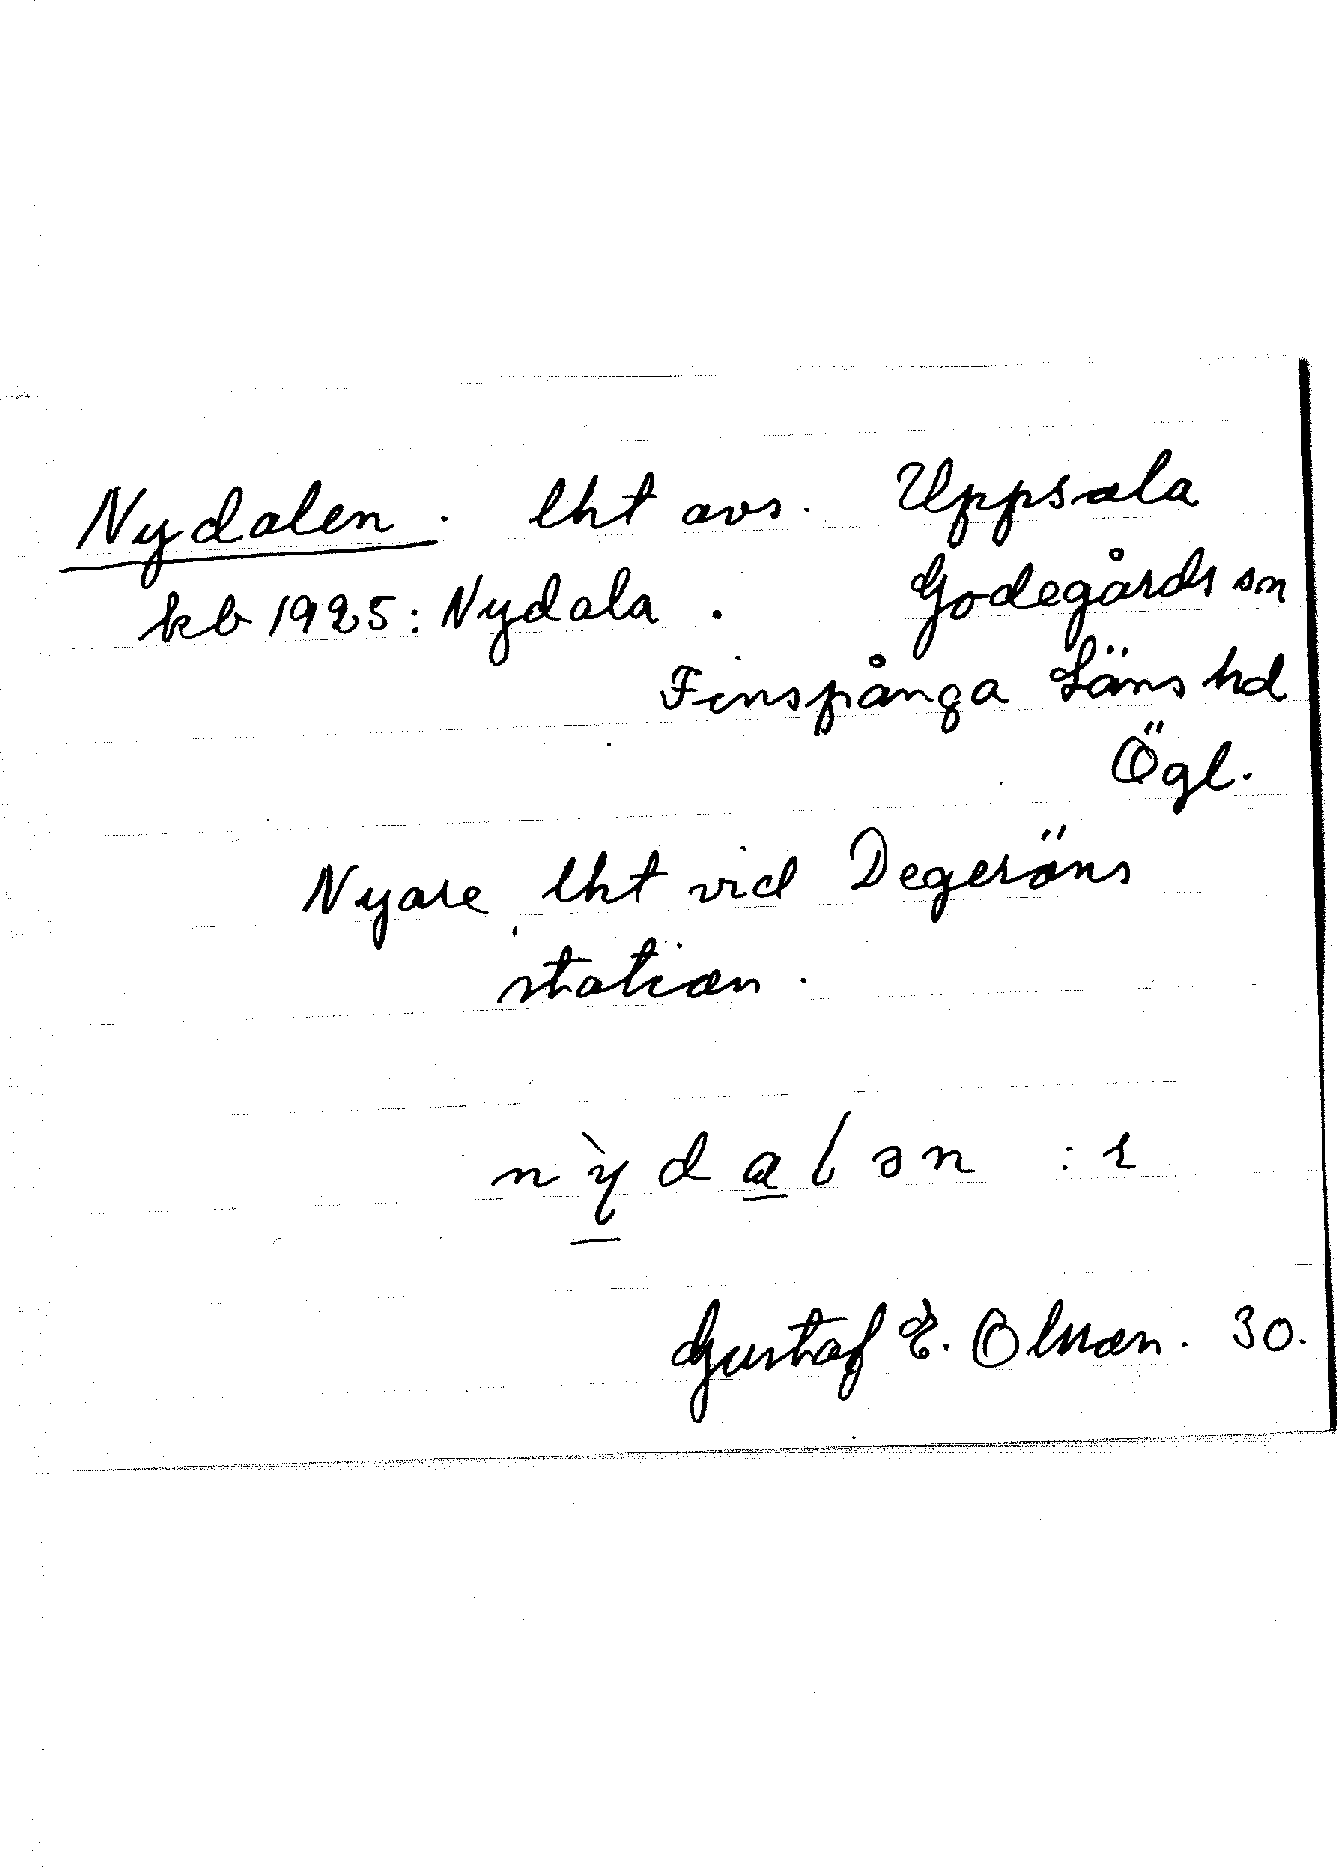 Nydalen. lht avs. Uppsala
kb 1925: Nydala. Godegårds sn
Finspånga Läns hd
Ögl.
Nyare lht vid Degeröns
station.
nỳdalən :ɩ
Gustaf E. Olsson. 30.